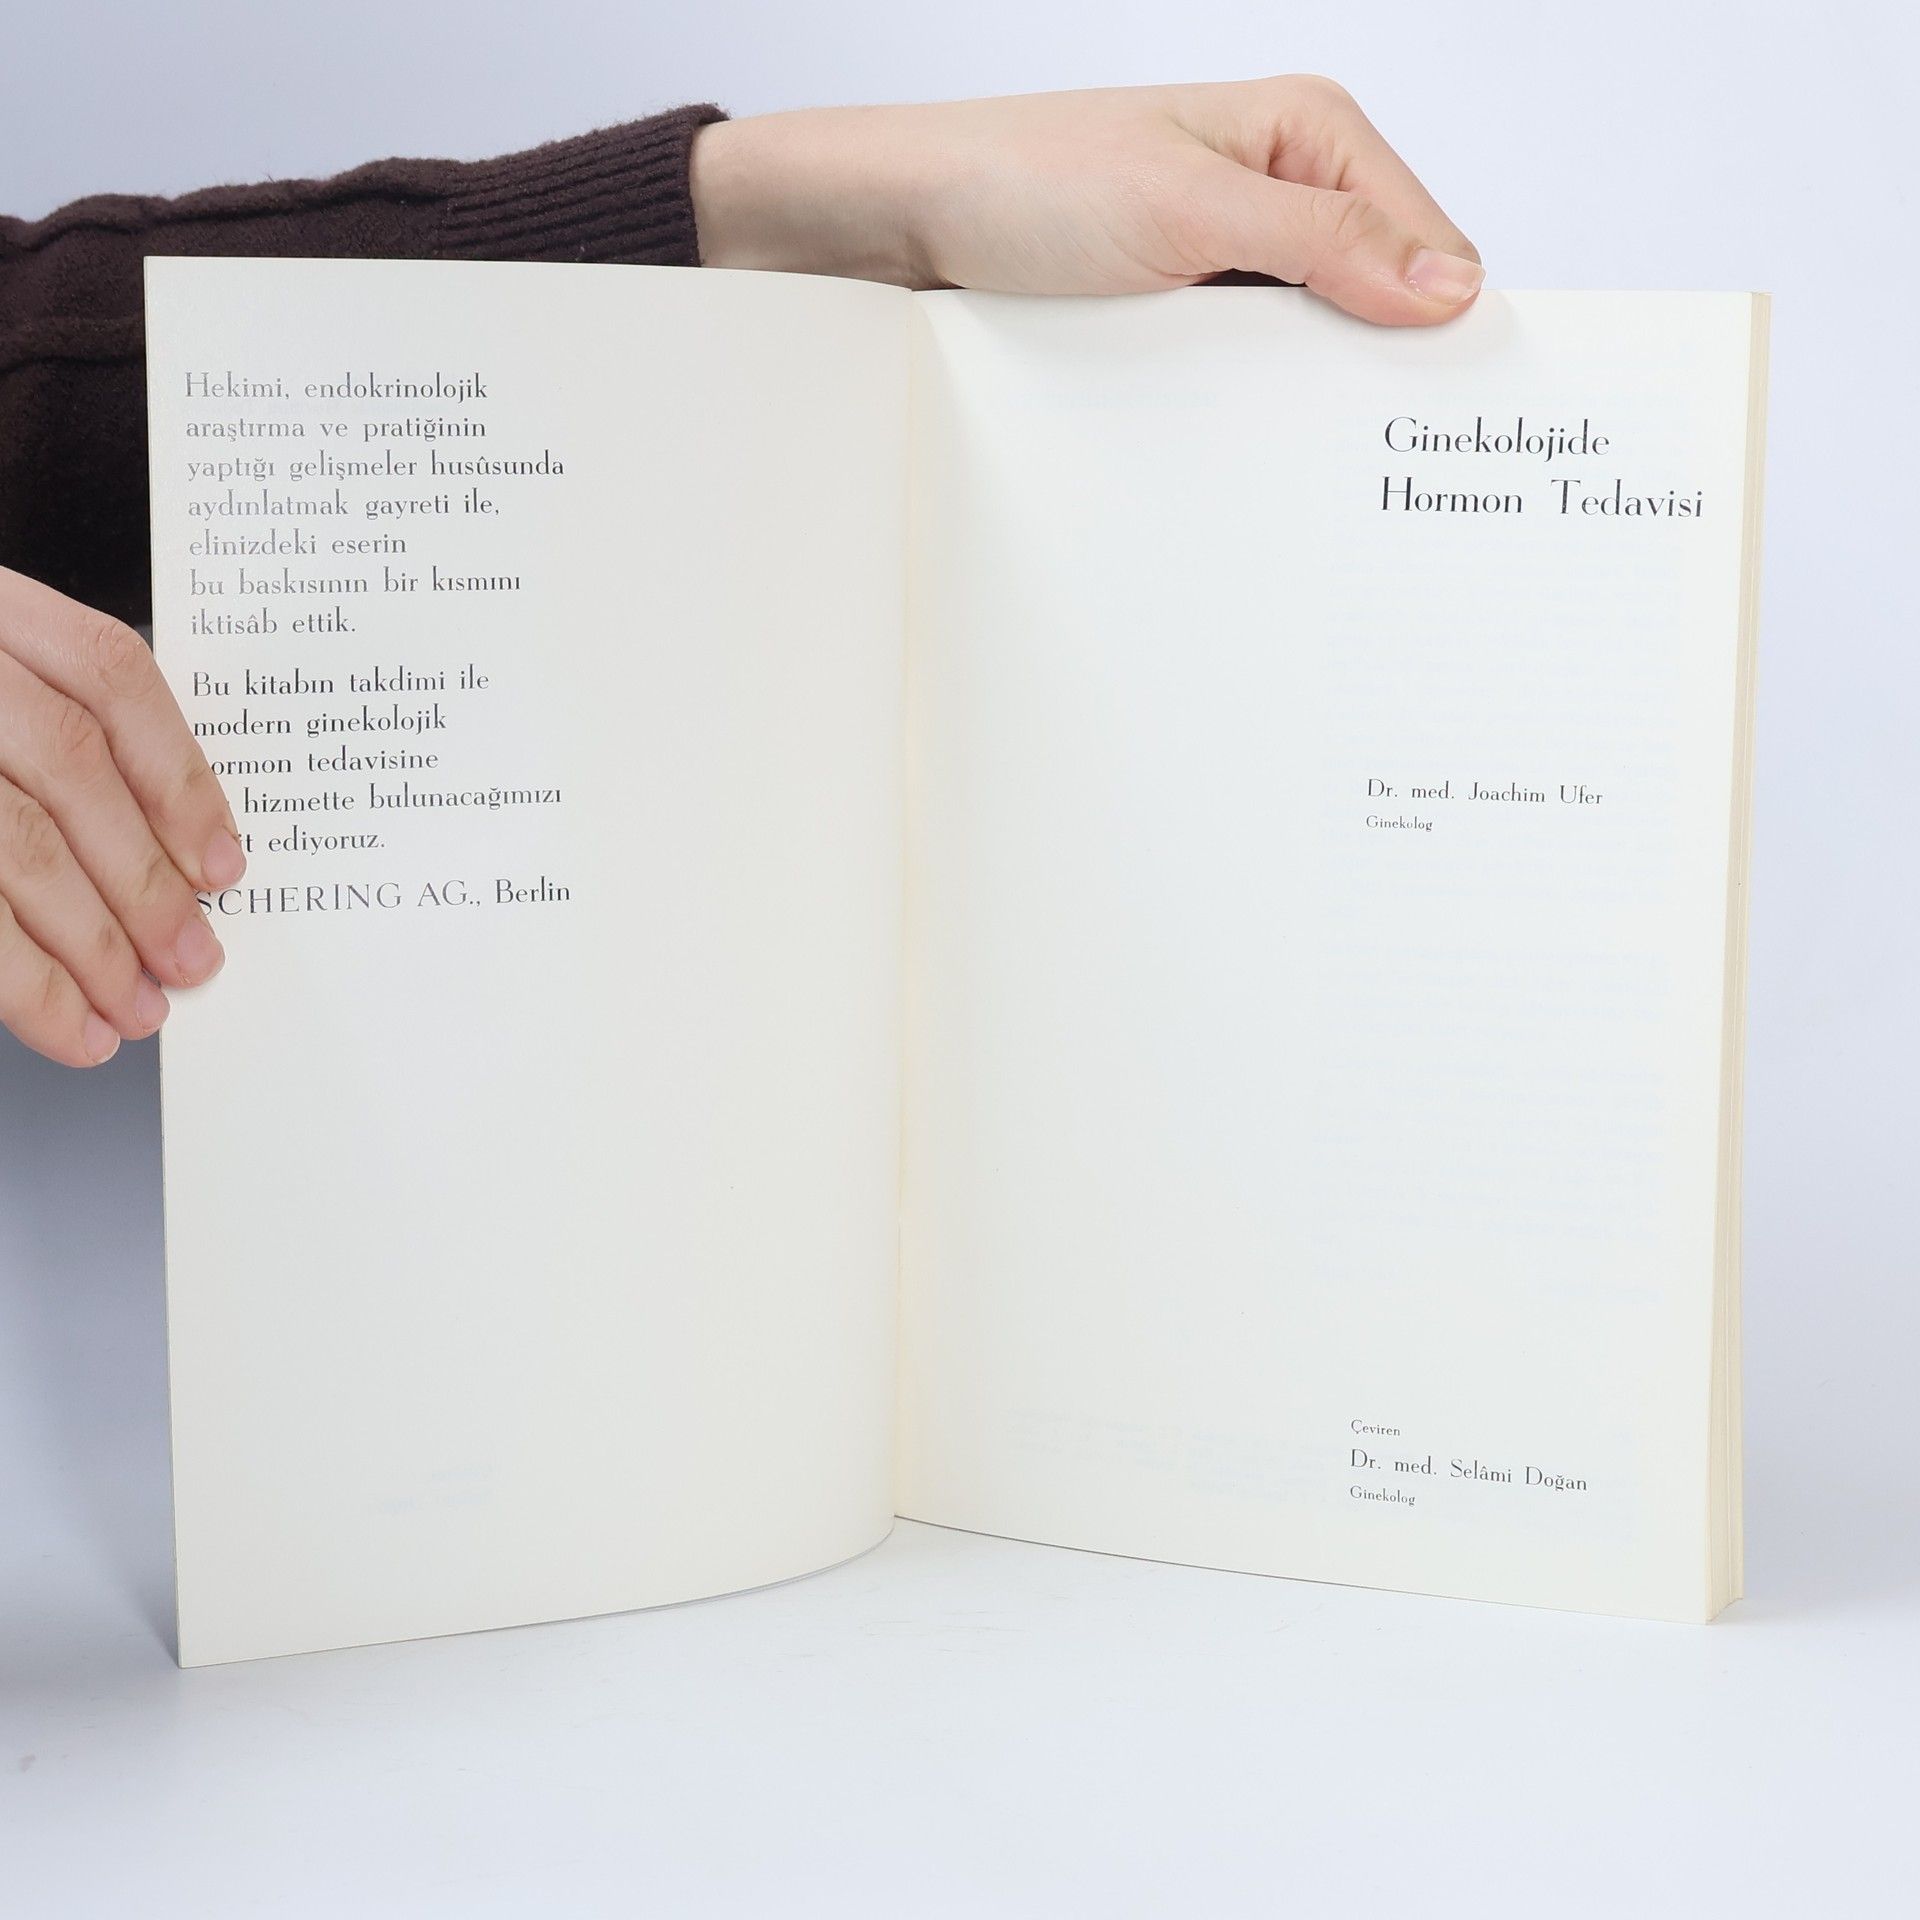 Hekimi, endokrinolojik
araştırma ve pratiğinin
yaptığı gelişmeler husûsunda
aydınlatmak gayreti ile,
elinizdeki eserin
bu baskısının bir kısmını
iktisâb ettik.
Bu kitabın takdimi ile
modern ginekolojik
ormon tedavisine
hizmette bulunacağımızı
ediyoruz.
SCHERING AG., Berlin
Ginekolojide
Hormon Tedavisi
Dr. med. Joachim Ufer
Ginekolog
Çeviren
Dr. med. Selâmi Doğan
Ginekolog